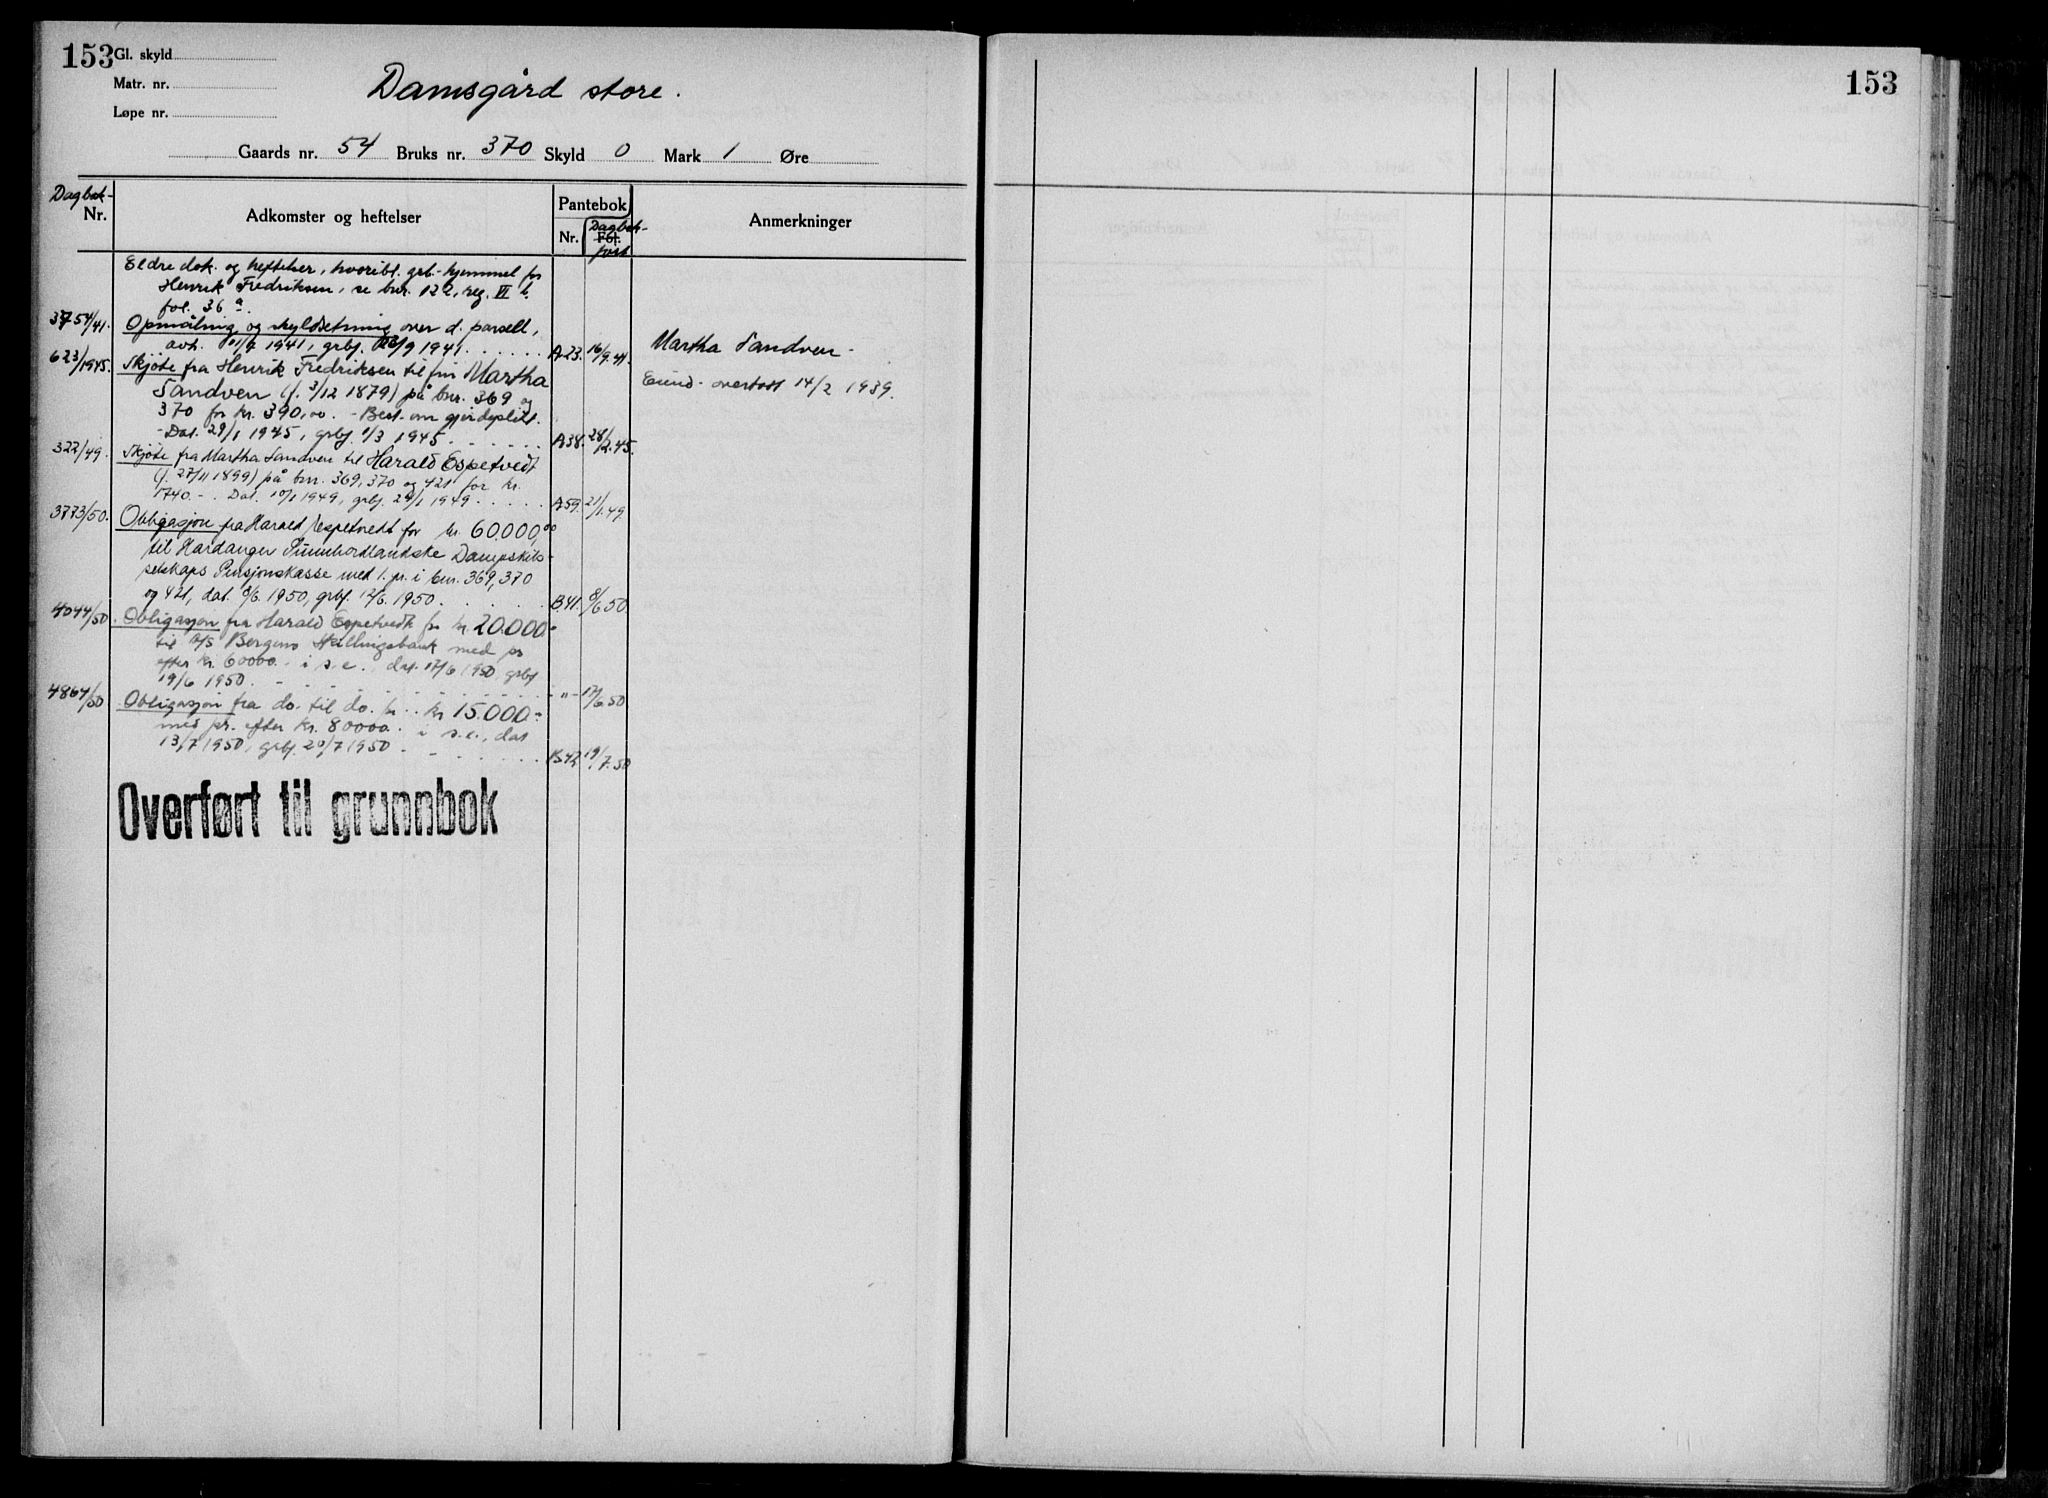 153
Gl. skyld
Matr. nr.
Løpe nr.
Damsgård store.
Gaards nr. 54 Bruks nr. 370 Skyld 0 Mark 1 Øre
153
Dagbok-
Nr.
Adkomster og heftelser
Pantebok
Nr.
Dagbok-
Fol.
ført
Anmerkninger
Eldre dok. og heftelser, hvoribl. grb.-hjemmel for
Henrik Fredriksen, se bnr. 122, reg. VI b.
fol. 36 a.
3754/41. Opmåling og skyldsetning over d. parsell,
avh. 1941, grbj. /9 1941. A 23. 16/9.41.
Martha Sandven.
623/1945. Skjøte fra Henrik Fredriksen til fru Martha
Eiend. overtatt 14/2 1939.
Sandven (f. 3/12 1879) på bnr. 369 og
370 for kr. 390,00. - Best. om gjerdeplikt.
- Dat. 29/1 1945, grbj. 1/3 1945. A 38. 28/2.45.
322/49. Skjøte fra Martha Sandven til Harald Espetvedt
(f. 27/11 1899) på bnr. 369, 370 og 421 for kr.
1740.-. Dat. 10/1 1949, grbj. 24/1 1949. A 59. 21/1.49
3773/50. Obligasjon fra Harald Espetvedt for kr. 60.000,00
til Hardanger Sunnhordlandske Dampskibs-
selskaps Pensjonskasse med 1. pr. i bnr. 369, 370
og 421, dat. 8/6. 1950, grbf. 12/6. 1950. B 41. 8/6.50
4044/50. Obligasjon fra Harald Espetvedt for kr 20.000.-
til A/S Bergens Skillingsbank med pr
efter kr. 60000.- i s.e., dat. 17/6 1950, grbf
19/6 1950. - " - 17/6.50
4864/50 Obligasjon fra do. til do. for kr 15.000.-
med pr. efter kr. 80000. i s.e., dat
13/7 1950, grbf. 20/7 1950. B 42 19/7.50
Overført til grunnbok